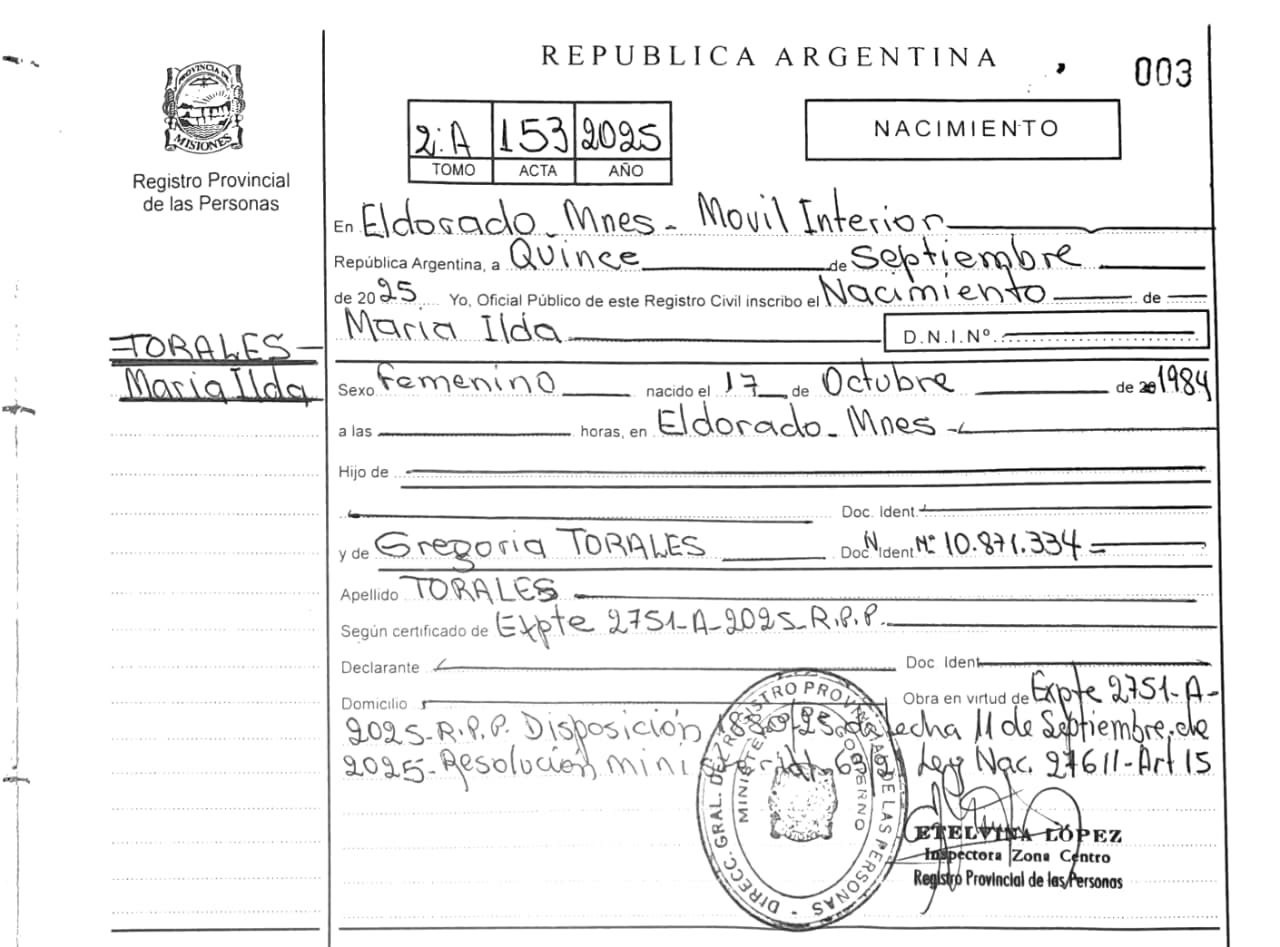 REPUBLICA ARGENTINA
003
PROVINCIA DE
MISIONES
Registro Provincial
de las Personas
2:A 153 2025
TOMO ACTA AÑO
NACIMIENTO
En Eldorado - Mnes - Movil Interior
República Argentina, a Quince de Septiembre
de 2025 Yo, Oficial Público de este Registro Civil inscribo el Nacimiento de
Maria Ilda D.N.I.Nº
TORALES
Maria Ilda
Sexo Femenino nacido el 17 de Octubre de 20 1984
a las horas, en Eldorado - Mnes -
Hijo de
Doc. Ident.
y de Gregoria TORALES Doc. Ident N Nº 10.871.334
Apellido TORALES
Según certificado de Expte 2751-A-2025-R.P.P.
Declarante Doc Ident.
Domicilio Obra en virtud de Expte 2751-A-
2025-R.P.P. Disposición 1880-25 de fecha 11 de Septiembre de
2025- Resolución mini Ley Nac. 27611-Art 15
DIRECC. GRAL. DEL REGISTRO PROVINCIAL DE LAS PERSONAS
MINISTERIO DE GOBIERNO
ETELVINA LÓPEZ
Inspectora Zona Centro
Registro Provincial de las Personas